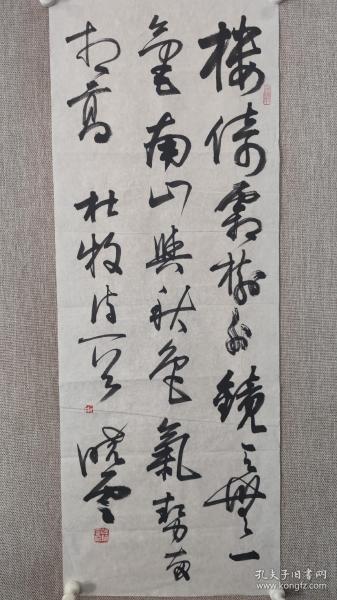 樓倚霜樹外鏡天無一
毫南山與秋色氣勢兩
相高 杜牧诗一首 晓雲
孔夫子旧书网